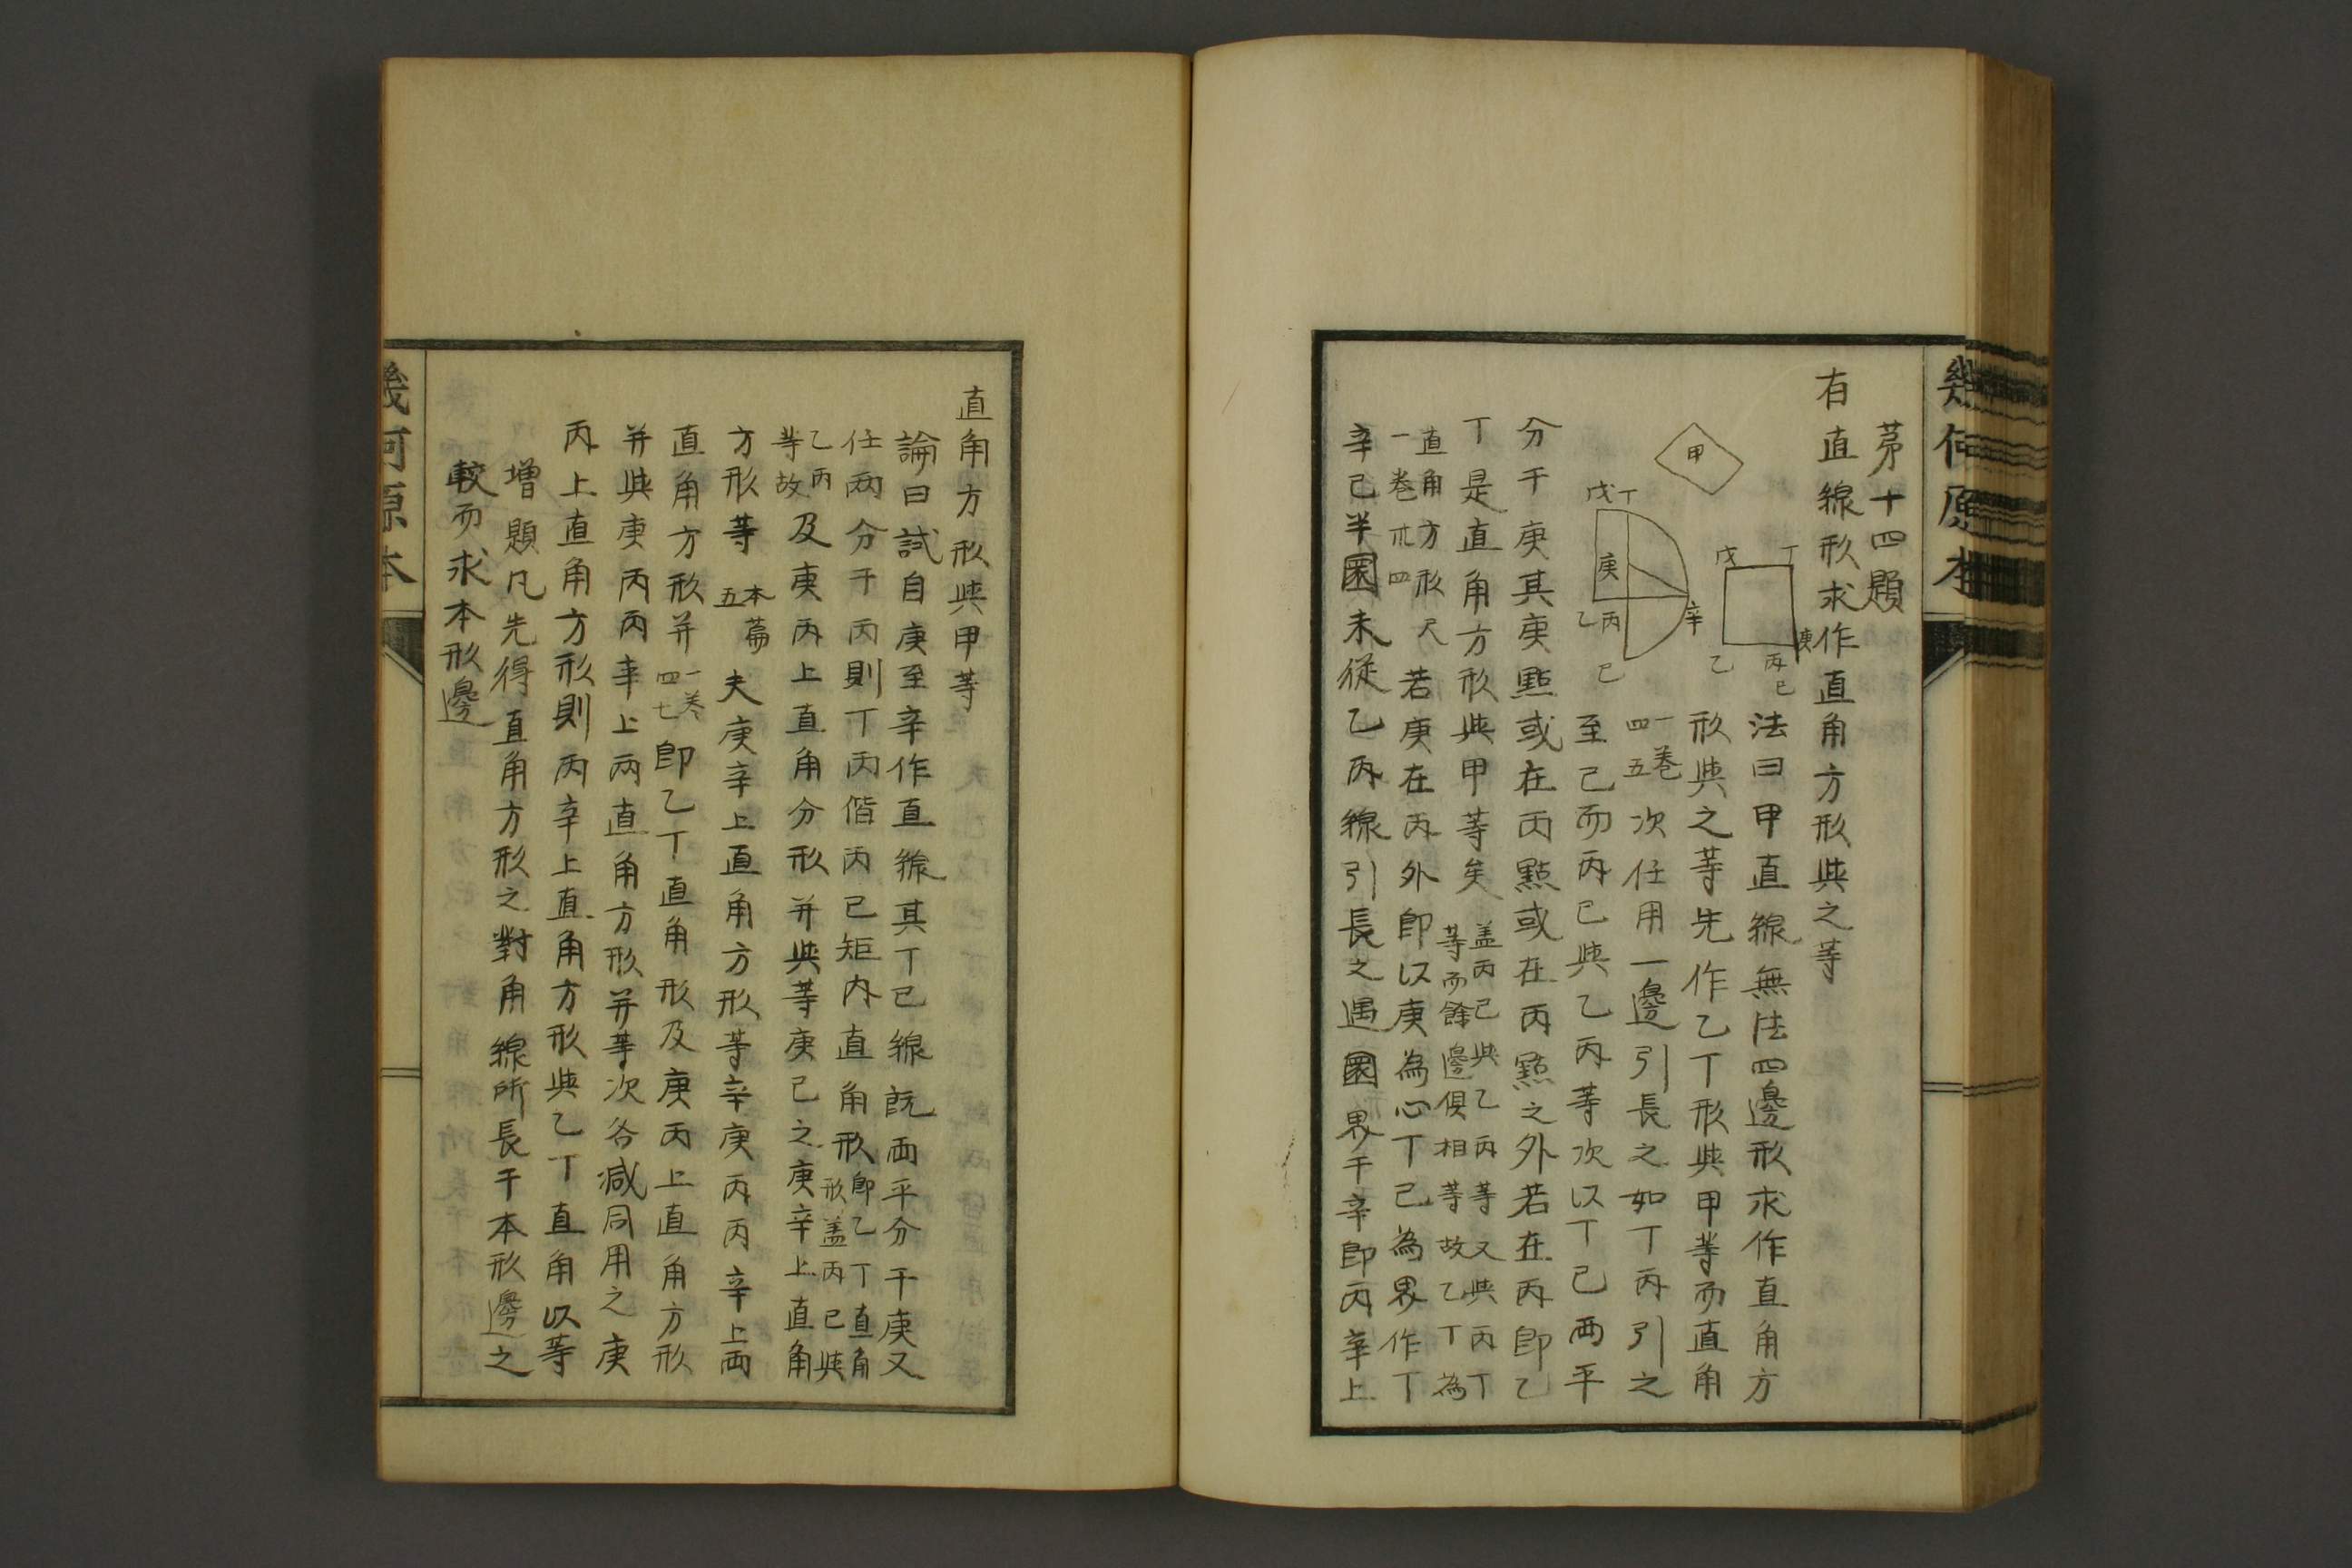 幾何原本
第十四題
有直線形求作直角方形與之等
甲
戊丁
庚
乙丙
辛
己
戊
丁
乙
丙
庚
己
法曰甲直線無法四邊形求作直角方
形與之等先作乙丁形與甲等而直角
一卷
四五
次任用一邊引長之如丁丙引之
至己而丙己與乙丙等次以丁己兩平
分于庚其庚點或在丙點或在丙點之外若在丙即乙
丁是直角方形與甲等矣
蓋丙己與乙丙等又與丙丁
等而餘邊俱相等故乙丁為
直角方形尺
一卷卅四
若庚在丙外即以庚為心丁己為界作丁
辛己半圜末從乙丙線引長之遇圜界于辛即丙辛上
直角方形與甲等
論曰試自庚至辛作直線其丁己線既両平分于庚又
任兩分于丙則丁丙偕丙己矩内直角形
即乙丁直角
形蓋丙己與
乙丙
等故
及庚丙上直角分形并與等庚己之庚辛上直角
方形等
本篇
五
夫庚辛上直角方形等辛庚丙丙辛上両
直角方形并
一卷
四七
即乙丁直角形及庚丙上直角方形
并與庚丙丙辛上兩直角方形并等次各減同用之庚
丙上直角方形則丙辛上直角方形與乙丁直角以等
增題凡先得直角方形之對角線所長于本形邊之
較而求本形邊
幾何原本